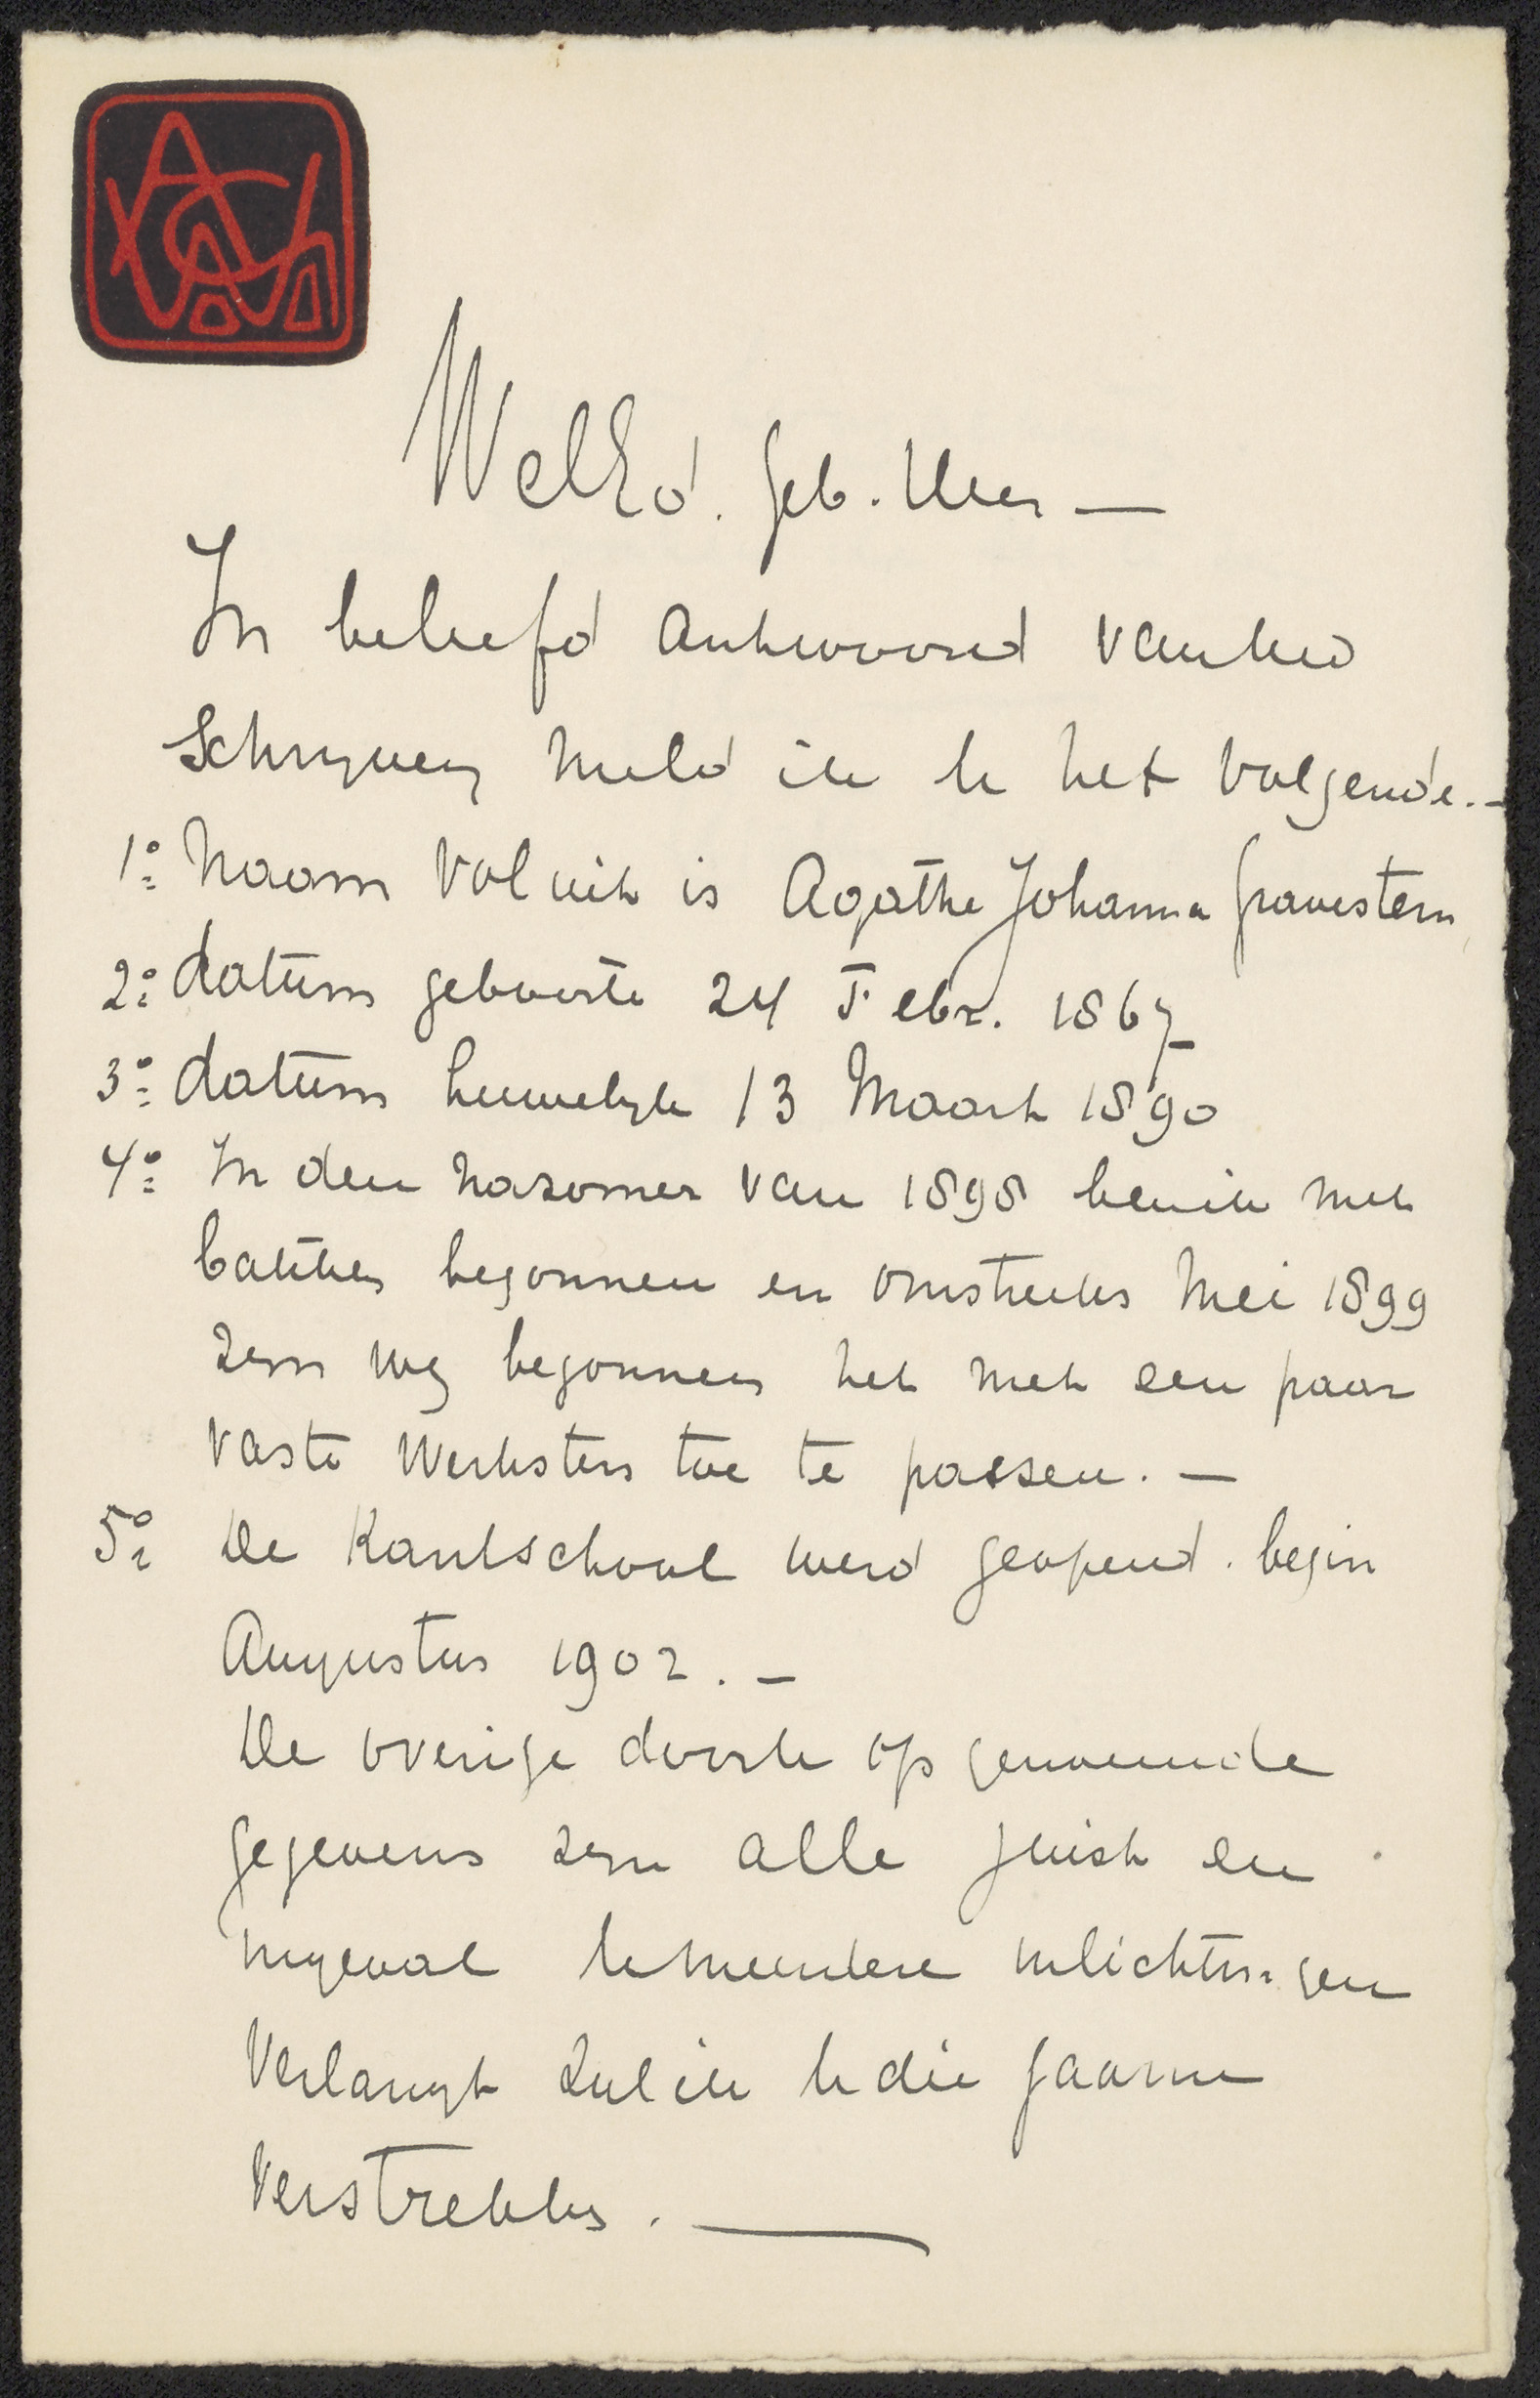 WelEd. Geb. Heer —
In beleefd antwoord van Uw
Schryven meld ik U het volgende. –
1º Naam voluit is Agathe Johanna Gravestein
2º datum geboorte 24 Febr. 1867
3º datum huwelyk 13 Maart 1890
4º In den nazomer van 1898 ben ik met
batikken begonnen en omstreeks Mei 1899
zyn wy begonnen het met een paar
vaste werksters toe te passen. —
5º De Kantschool werd geopend. begin
Augustus 1902. –
De overige door U opgenoemde
gegevens zyn alle juist en
ingeval U meerdere inlichtingen
verlangt zal ik U die gaarne
verstrekken. —